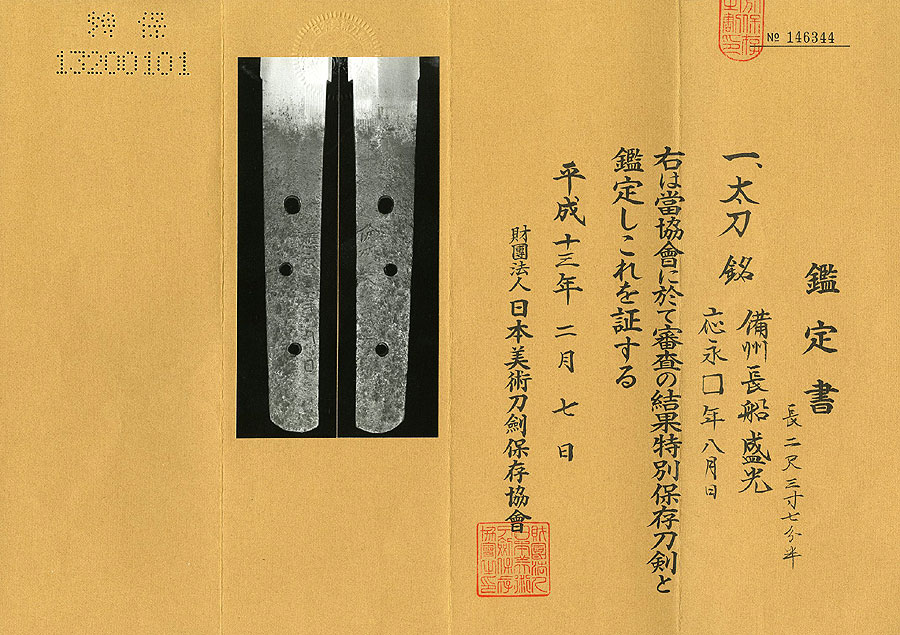 特保
13200101
№ 146344
鑑定書
長二尺三寸七分半
一、太刀 銘 備州長船盛光
応永□年八月日
右は當協會に於て審査の結果特別保存刀剣と
鑑定しこれを証する
平成十三年二月七日
財團法人 日本美術刀劍保存協會